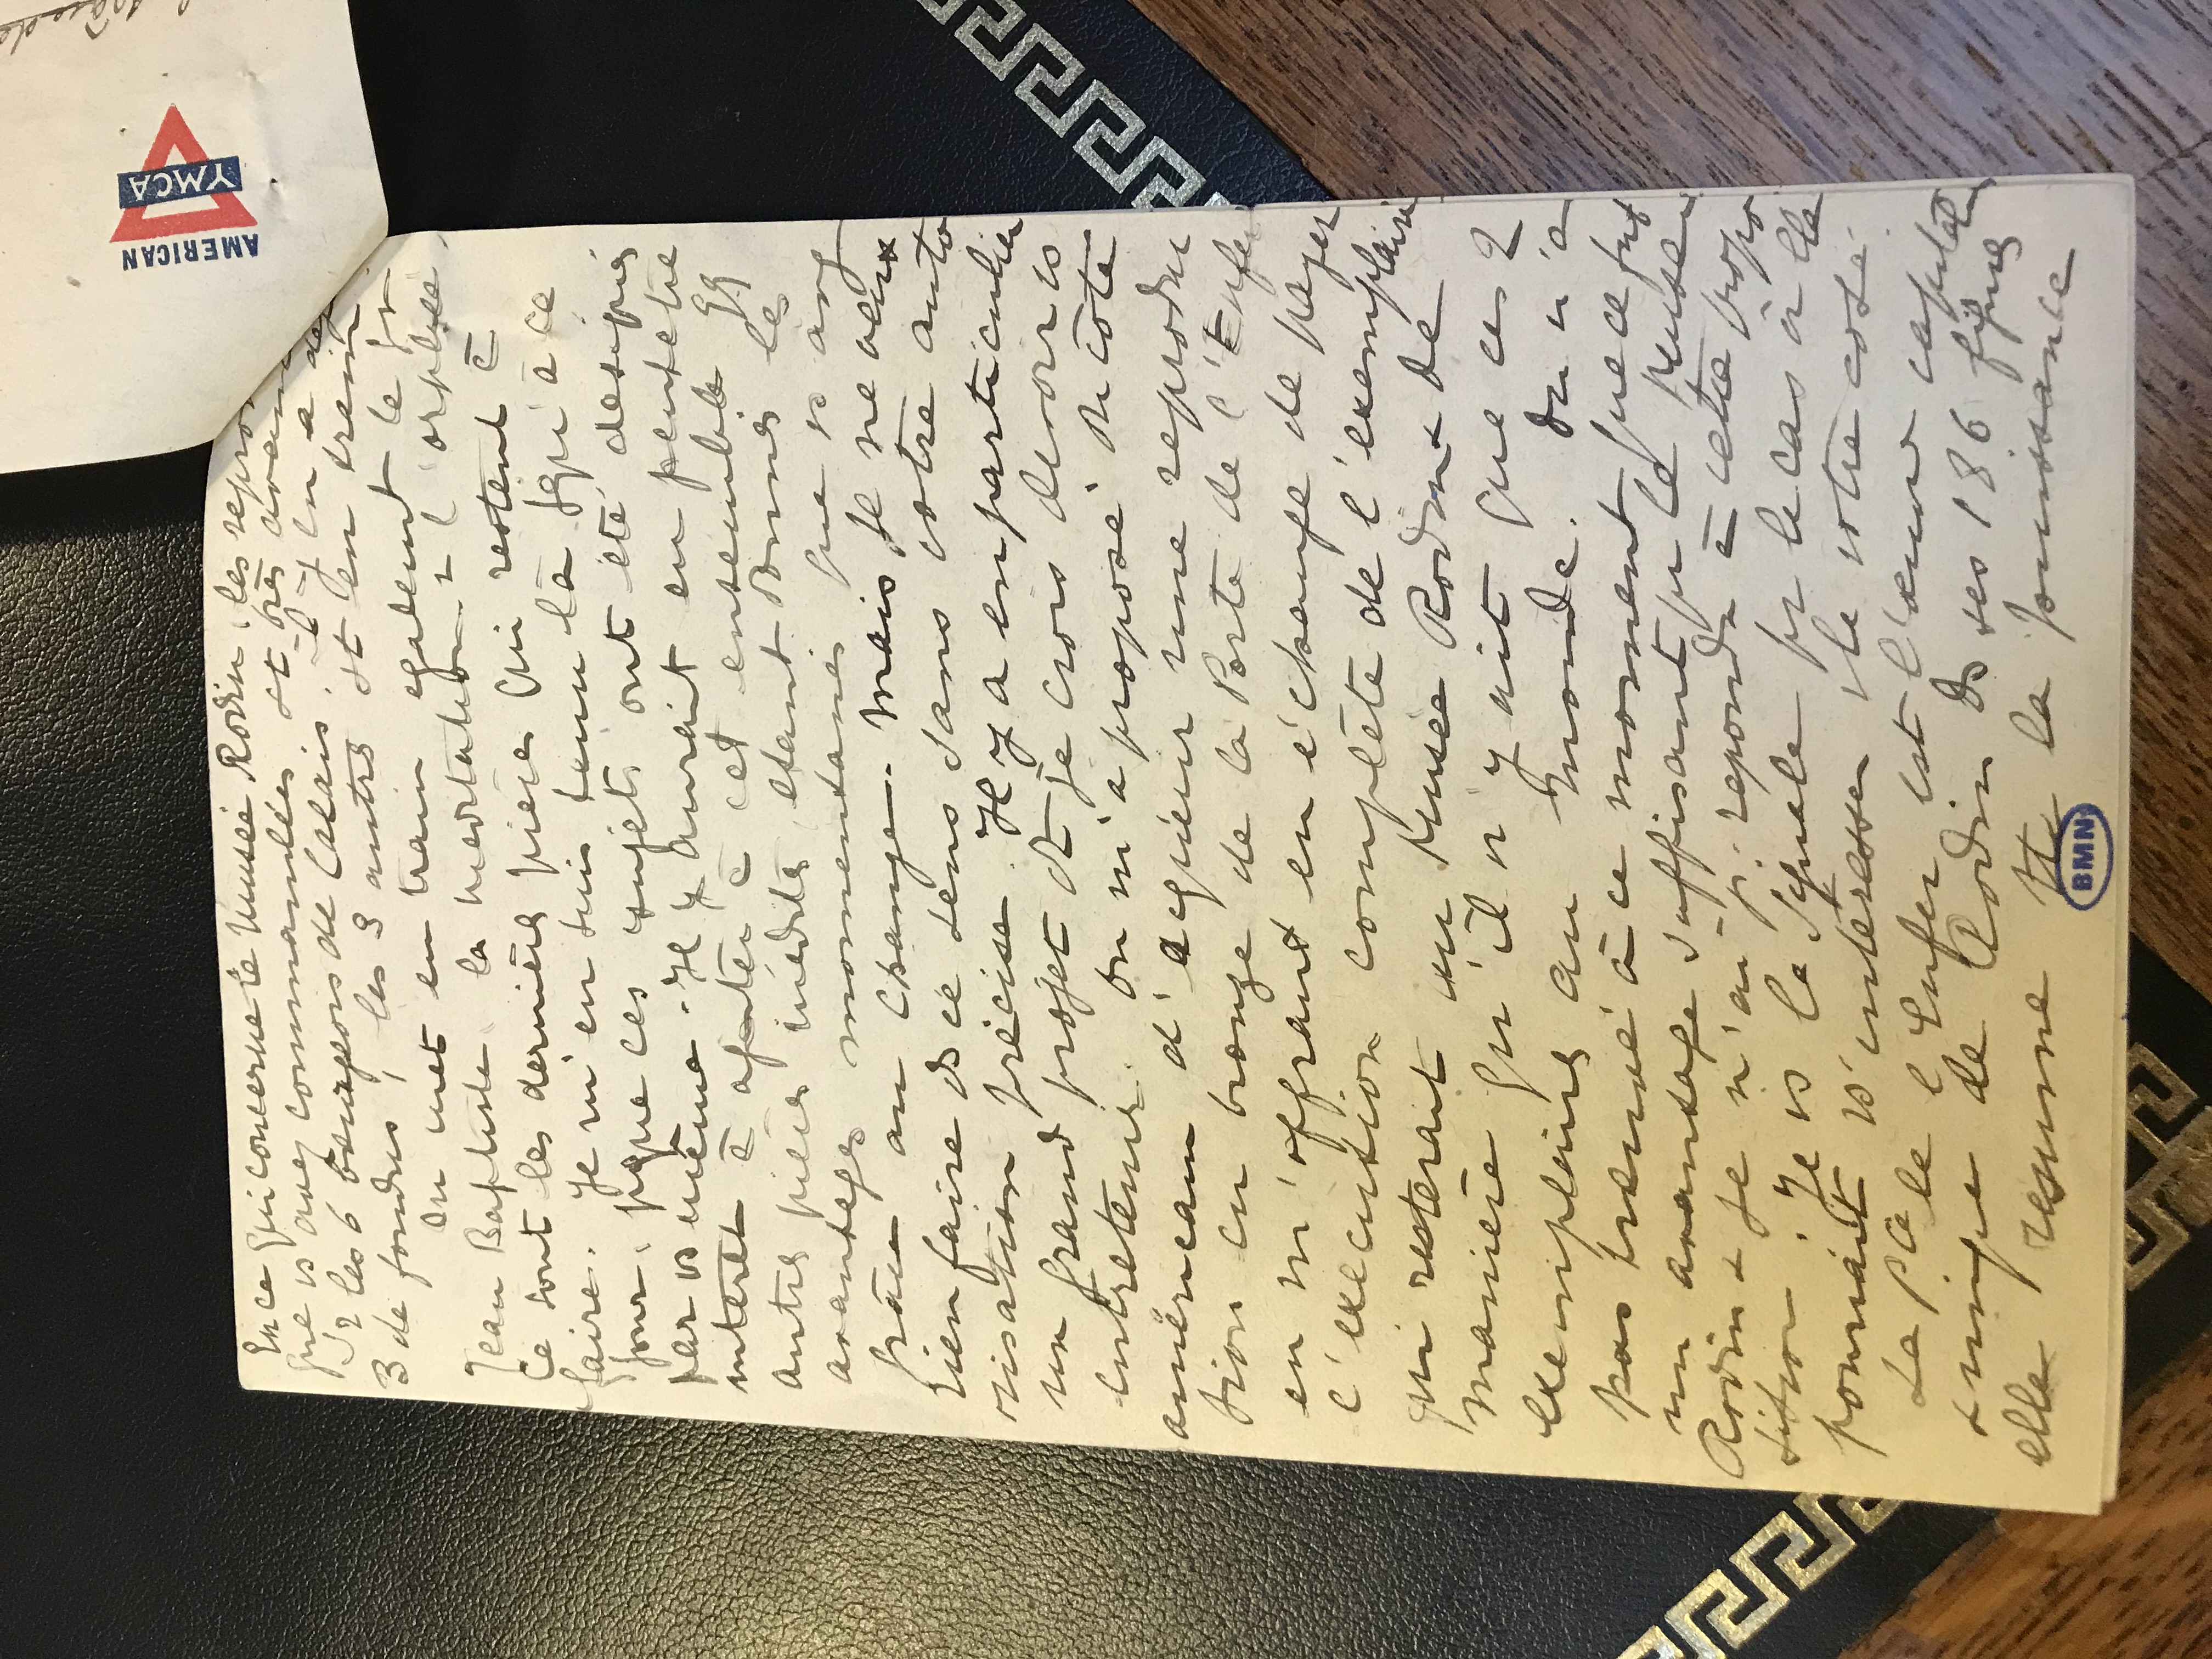 AMERICAN
YMCA
En ce qui concerne le Musée Rodin, les repro
que vs avez commandées st très avan
les 6 bourgeois de Calais. il y en a déj
3 de fondus, les 3 autres st en train
On met en train également le St
Jean Baptiste la méditation & l'orphée
Ce sont les dernières pièces qui restent à
faire. Je m'en suis tenu là jqu'à ce
jour, pque ces sujets ont été désignés
par vs même. Il y aurait en peut être
intérêt à ajouter à cet ensemble qq
autres pièces inédites, étant donnés les
avantages momentanés que vs avez
grâce au change. Mais je ne veux
rien faire ds ce sens sans votre auto
risation précise. Il y a en particulier
un grand projet dt je crois devoir vs
entretenir. On m'a proposé du côté
américain d'acquérir une reproduc
tion en bronze de la Porte de l'Enfer
en m'offrant en échange de payer
l'exécution complète de l'exemplaire
qui resterait au Musée Rodin & de
manière qu'il n'y ait que ces 2
exemplaires au monde. On n'a
pas trouvé à ce moment que ce fut
un avantage suffisant pr le Musée
Rodin & je n'ai pu répondre à cette propo
sition. Je vs la signale pr le cas où elle
pourrait vs intéresser de votre côté.
La Pte de l'Enfer est l'œuvre capitale
& unique de Rodin. Ds ses 186 figures
elle résume tte la jouissance
BMN